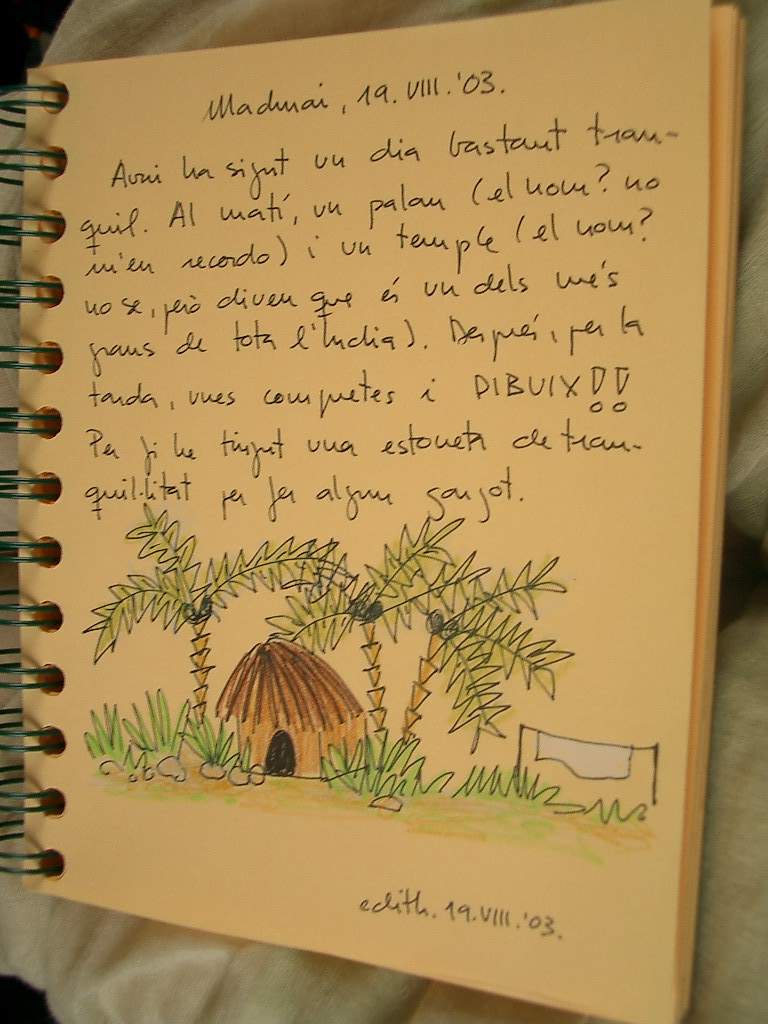 Madurai, 19.VIII.'03.
Avui ha sigut un dia bastant tran-
quil. Al matí, un palau (el nom? no
m'en recordo) i un temple (el nom?
no se, però diuen que és un dels més
grans de tota l'India). Després, per la
tarda, unes compretes i DIBUIX!!
Per fi he tingut una estoneta de tran-
quil·litat per fer algun gargot.
edith. 19.VIII.'03.